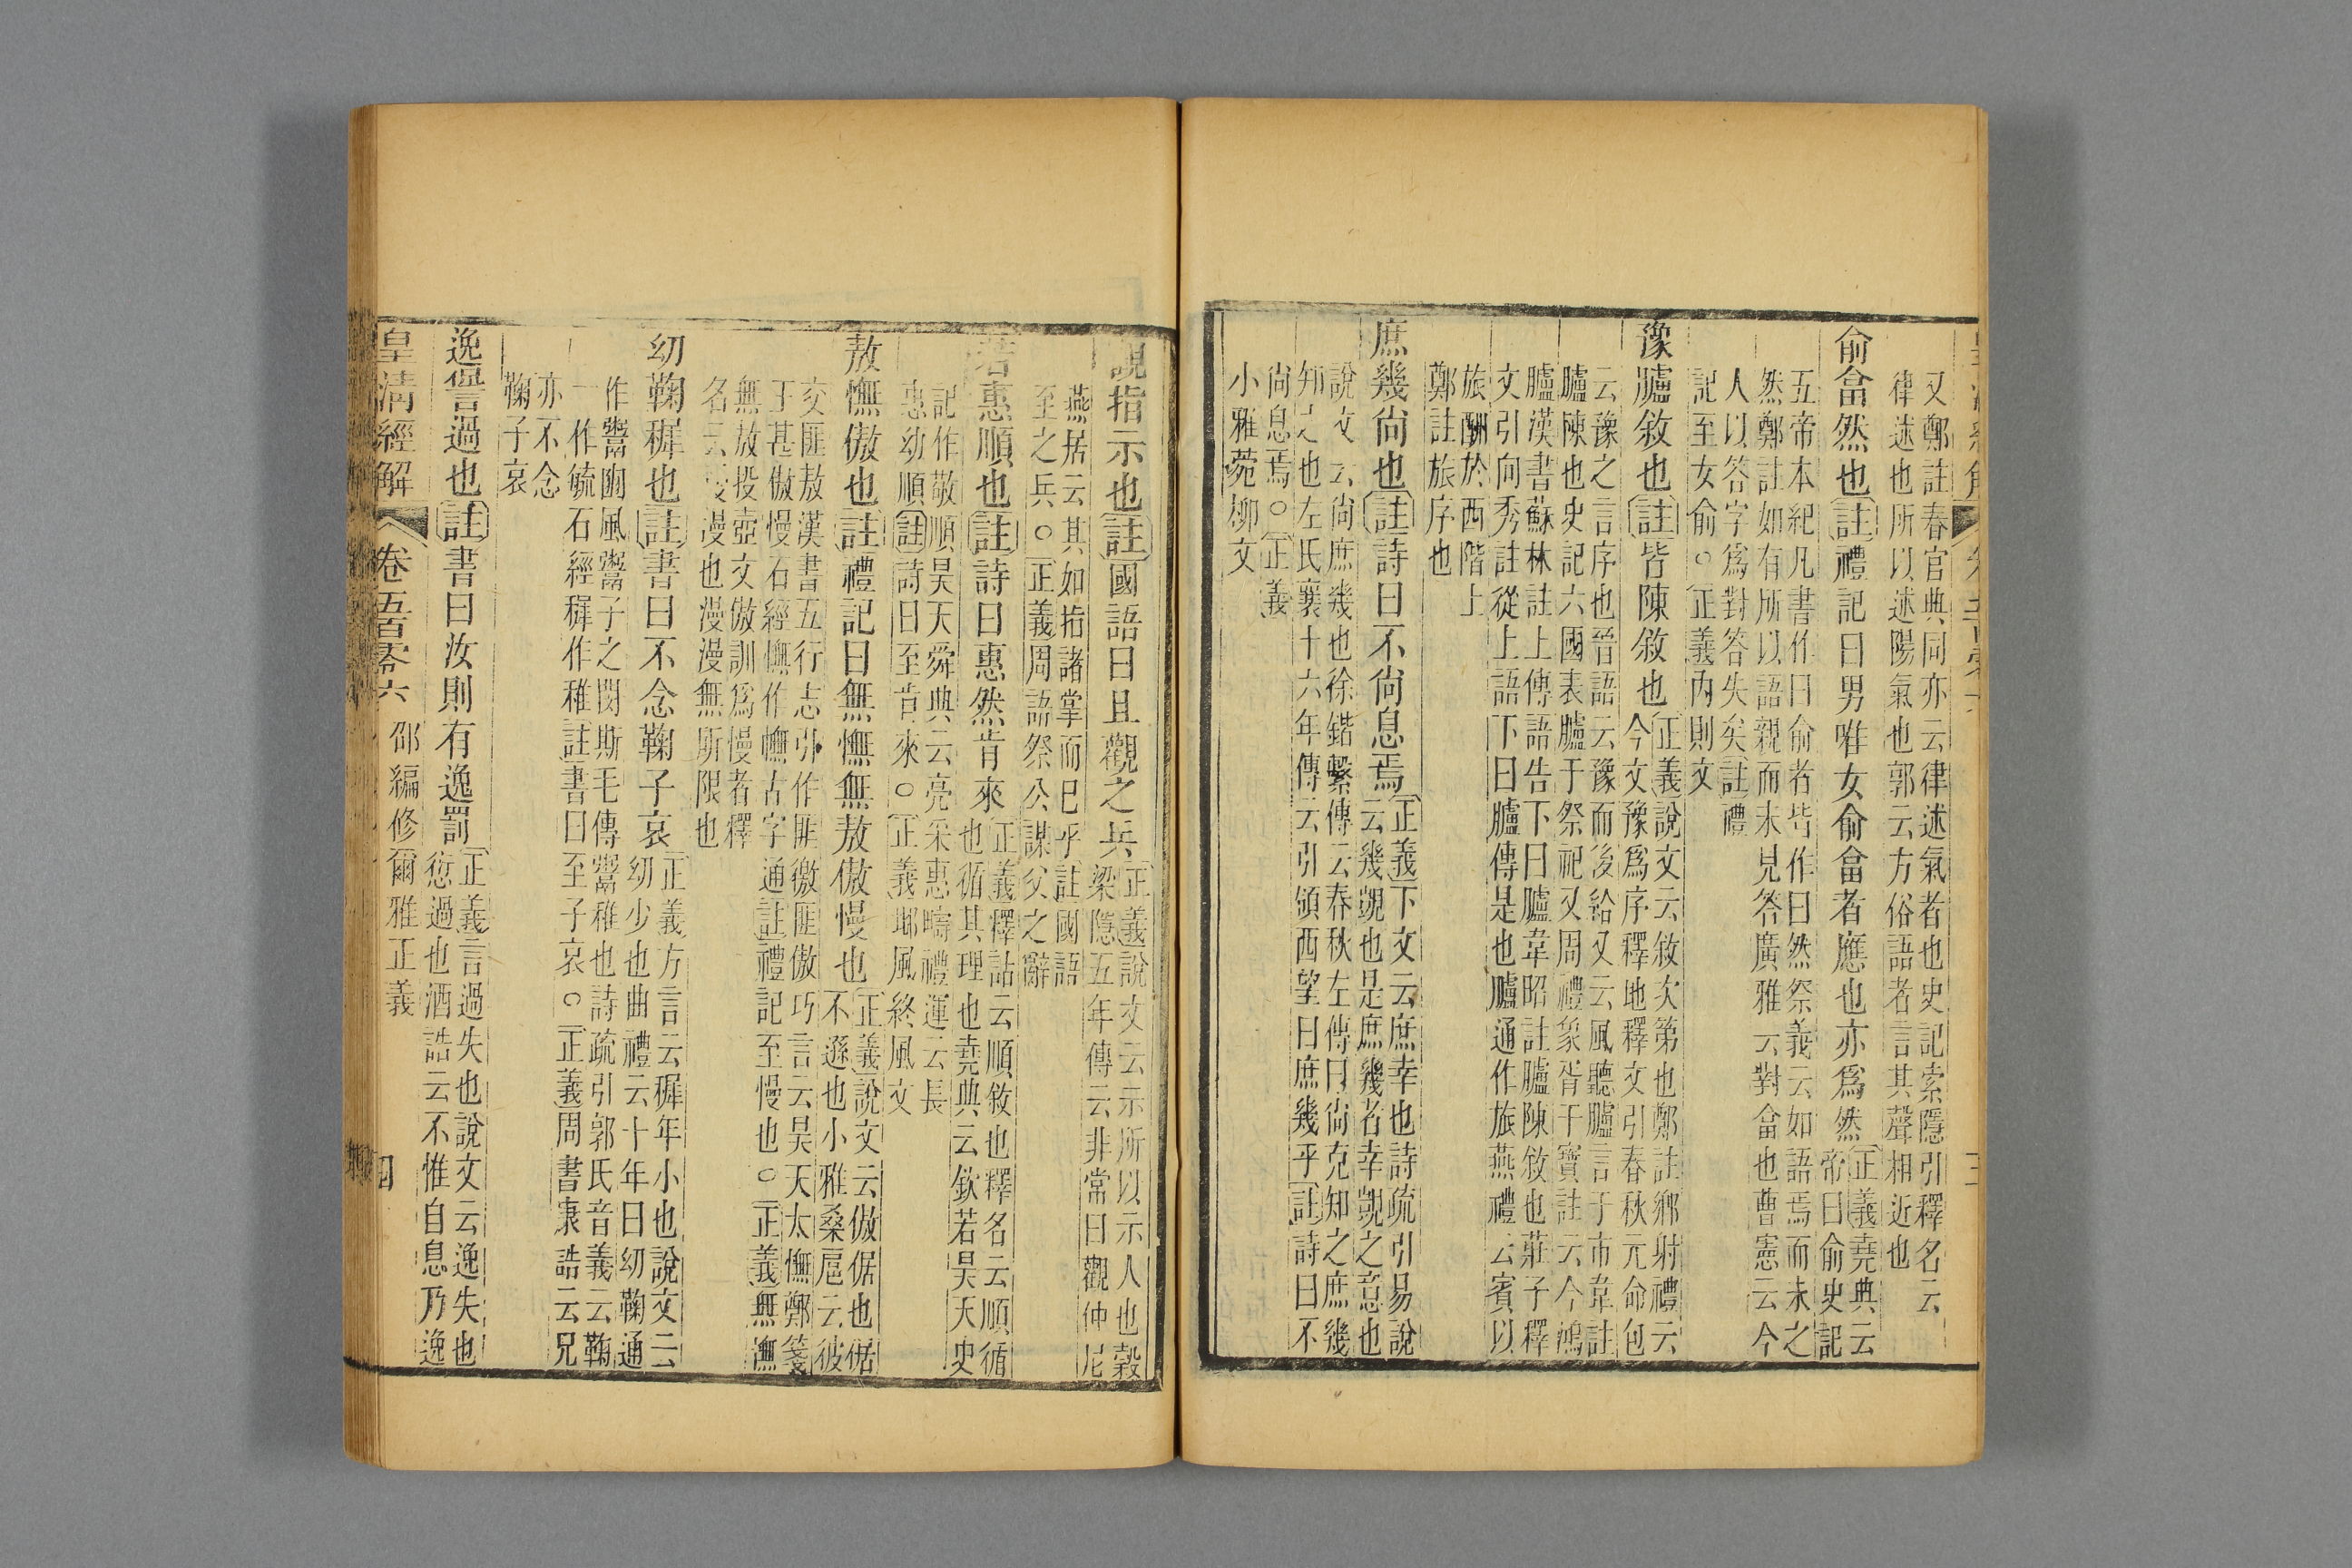 又鄭註春官典同亦云律述氣者也史記索隱引釋名云
律述也所以述陽氣也郭云方俗語者言其聲相近也
俞畣然也註禮記曰男唯女俞畣者應也亦爲然正義堯典云
帝曰俞史記
五帝本紀凡書作曰俞者皆作曰然祭義云如語焉而未之
然鄭註如有所以語親而未見答廣雅云對畣也曹憲云今
人以答字爲對答失矣註禮
記至女俞○正義內則文
豫臚敘也註皆陳敘也正義說文云敘次第也鄭註鄉射禮云
今文豫爲序釋地釋文引春秋元命包
云豫之言序也晉語云豫而後給又云風聽臚言于市韋註
臚陳也史記六國表臚于祭祀又周禮象胥干寶註云今鴻
臚漢書蘇林註上傳語告下曰臚韋昭註臚陳敘也莊子釋
文引向秀註從上語下曰臚傳是也臚通作旅燕禮云賓以
旅酬於西階上
鄭註旅序也
庶幾尙也註詩曰不尙息焉正義下文云庶幸也詩疏引易說
云幾覬也是庶幾者幸覬之意也
說文云尙庶幾也徐鍇繫傳云春秋左傳曰尙克知之庶幾
知之也左氏襄十六年傳云引領西望曰庶幾乎註詩曰不
尙息焉○正義
小雅菀柳文
觀指示也註國語曰且觀之兵正義說文云示所以示人也穀
梁隱五年傳云非常曰觀仲尼
燕居云其如指諸掌而已乎註國語
至之兵○正義周語祭公謀父之辭
若惠順也註詩曰惠然肯來正義釋詁云順敘也釋名云順循
也循其理也堯典云欽若昊天史
記作敬順昊天舜典云亮采惠疇禮運云長
惠幼順註詩曰至肯來○正義邶風終風文
敖憮傲也註禮記曰無憮無敖傲慢也正義說文云傲倨也倨
不遜也小雅桑扈云彼
交匪敖漢書五行志引作匪徼匪傲巧言云昊天太憮鄭箋
于甚傲慢石經憮作幠古字通註禮記至慢也○正義無憮
無敖投壺文傲訓爲慢者釋
名云慢漫也漫漫無所限也
幼鞠稺也註書曰不念鞠子哀正義方言云稺年小也說文云
幼少也曲禮云十年曰幼鞠通
作鬻豳風鬻子之閔斯毛傳鬻稚也詩疏引郭氏音義云鞠
一作毓石經稺作稚註書曰至子哀○正義周書康誥云兄
亦不念
鞠子哀
逸諐過也註書曰汝則有逸罰正義言過失也說文云逸失也
愆過也酒誥云不惟自息乃逸
皇清經解 卷五百零六 邵編修爾雅正義 四